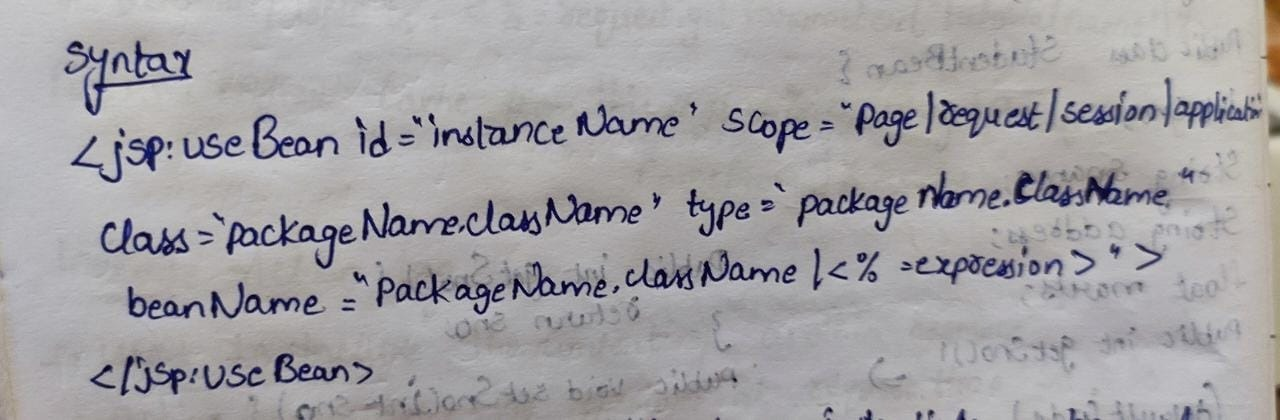 Syntax
<jsp:useBean id="instanceName" scope="page/request/session/application
class="packageName.className" type="packageName.className"
beanName="packageName.className | <%=expression>">
</jsp:useBean>